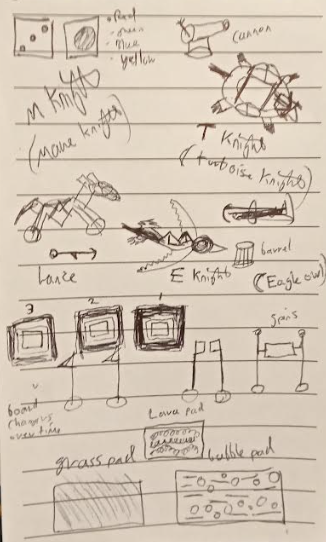 Red
Blue
yellow
Cannon
M Knight
T Knight
(tortoise Knight)
barrel
Lance
E Knight
(Eagle owl)
3 2 1
board
Changes
over time
Lower pad
grass pad
bubble pad